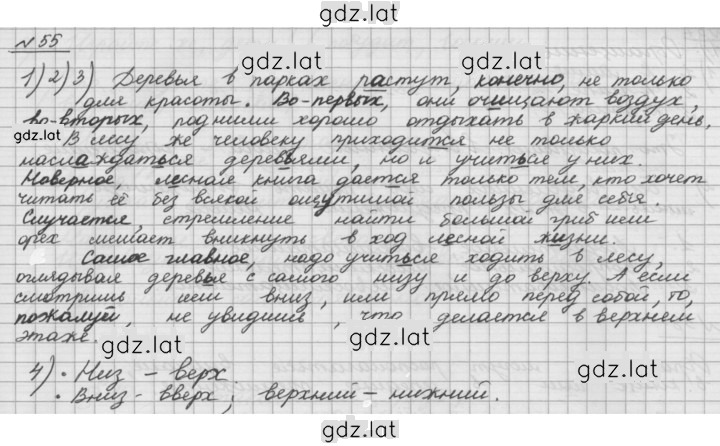 gdz.lat
№ 55
gdz.lat
1) 2) 3) Деревья в парках растут, конечно, не только
для красоты. Во-первых, они очищают воздух,
во-вторых, под ними хорошо отдыхать в жаркий день.
gdz.lat
gdz.lat
В лесу же человеку приходится не только
наслаждаться деревьями, но и учиться у них.
Наверное, лесная книга дается только тем, кто хочет
gdz.lat
читать её без всякой ощутимой пользы для себя.
Случается, стремление найти большой гриб или
орех мешает вникнуть в ход лесной жизни.
gdz.lat
gdz.lat
Самое главное, надо учиться ходить в лесу,
оглядывая деревья с самого низу и до верху. А если
смотришь или вниз, или прямо перед собой, то,
gdz.lat
пожалуй, не увидишь, что делается в верхнем
этаже.
gdz.lat
gdz.lat
4) • Низ – верх.
• Вниз – вверх; верхний – нижний.
gdz.lat
gdz.lat